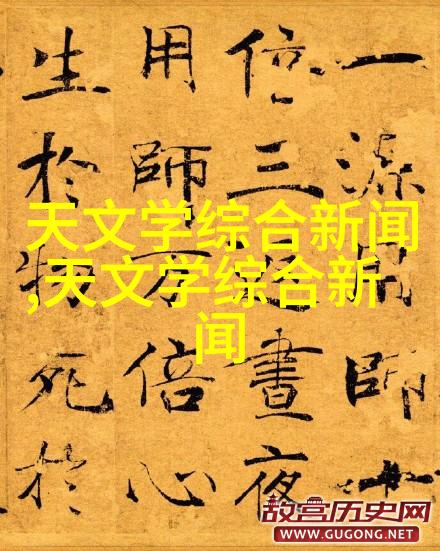 天文学综合新闻
,天文学综合新
闻
一源用師十
倍三晝夜
用師万倍心
生於物死於
故宫历史网
WWW.GUGONG.NET